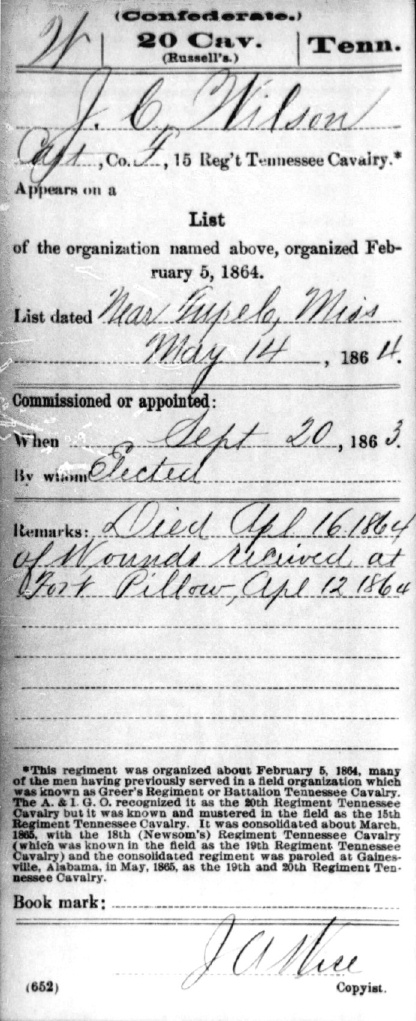 (Confederate.)
W | 20 Cav. | Tenn.
(Russell's.)
J. C. Wilson
Capt, Co. F, 15 Reg't Tennessee Cavalry.*
Appears on a
List
of the organization named above, organized Feb-
ruary 5, 1864.
List dated Near Tupelo, Miss
May 14, 1864.
Commissioned or appointed:
When Sept 20, 1863.
By whom Elected
Remarks: Died Apl 16 1864
of Wounds received at
Fort Pillow, Apl 12 1864
*This regiment was organized about February 5, 1864, many
of the men having previously served in a field organization which
was known as Greer's Regiment or Battalion Tennessee Cavalry.
The A. & I. G. O. recognized it as the 20th Regiment Tennessee
Cavalry but it was known and mustered in the field as the 15th
Regiment Tennessee Cavalry. It was consolidated about March,
1865, with the 18th (Newsom's) Regiment Tennessee Cavalry
(which was known in the field as the 19th Regiment Tennessee
Cavalry) and the consolidated regiment was paroled at Gaines-
ville, Alabama, in May, 1865, as the 19th and 20th Regiment Ten-
nessee Cavalry.
Book mark:
J A Wise
(652) Copyist.